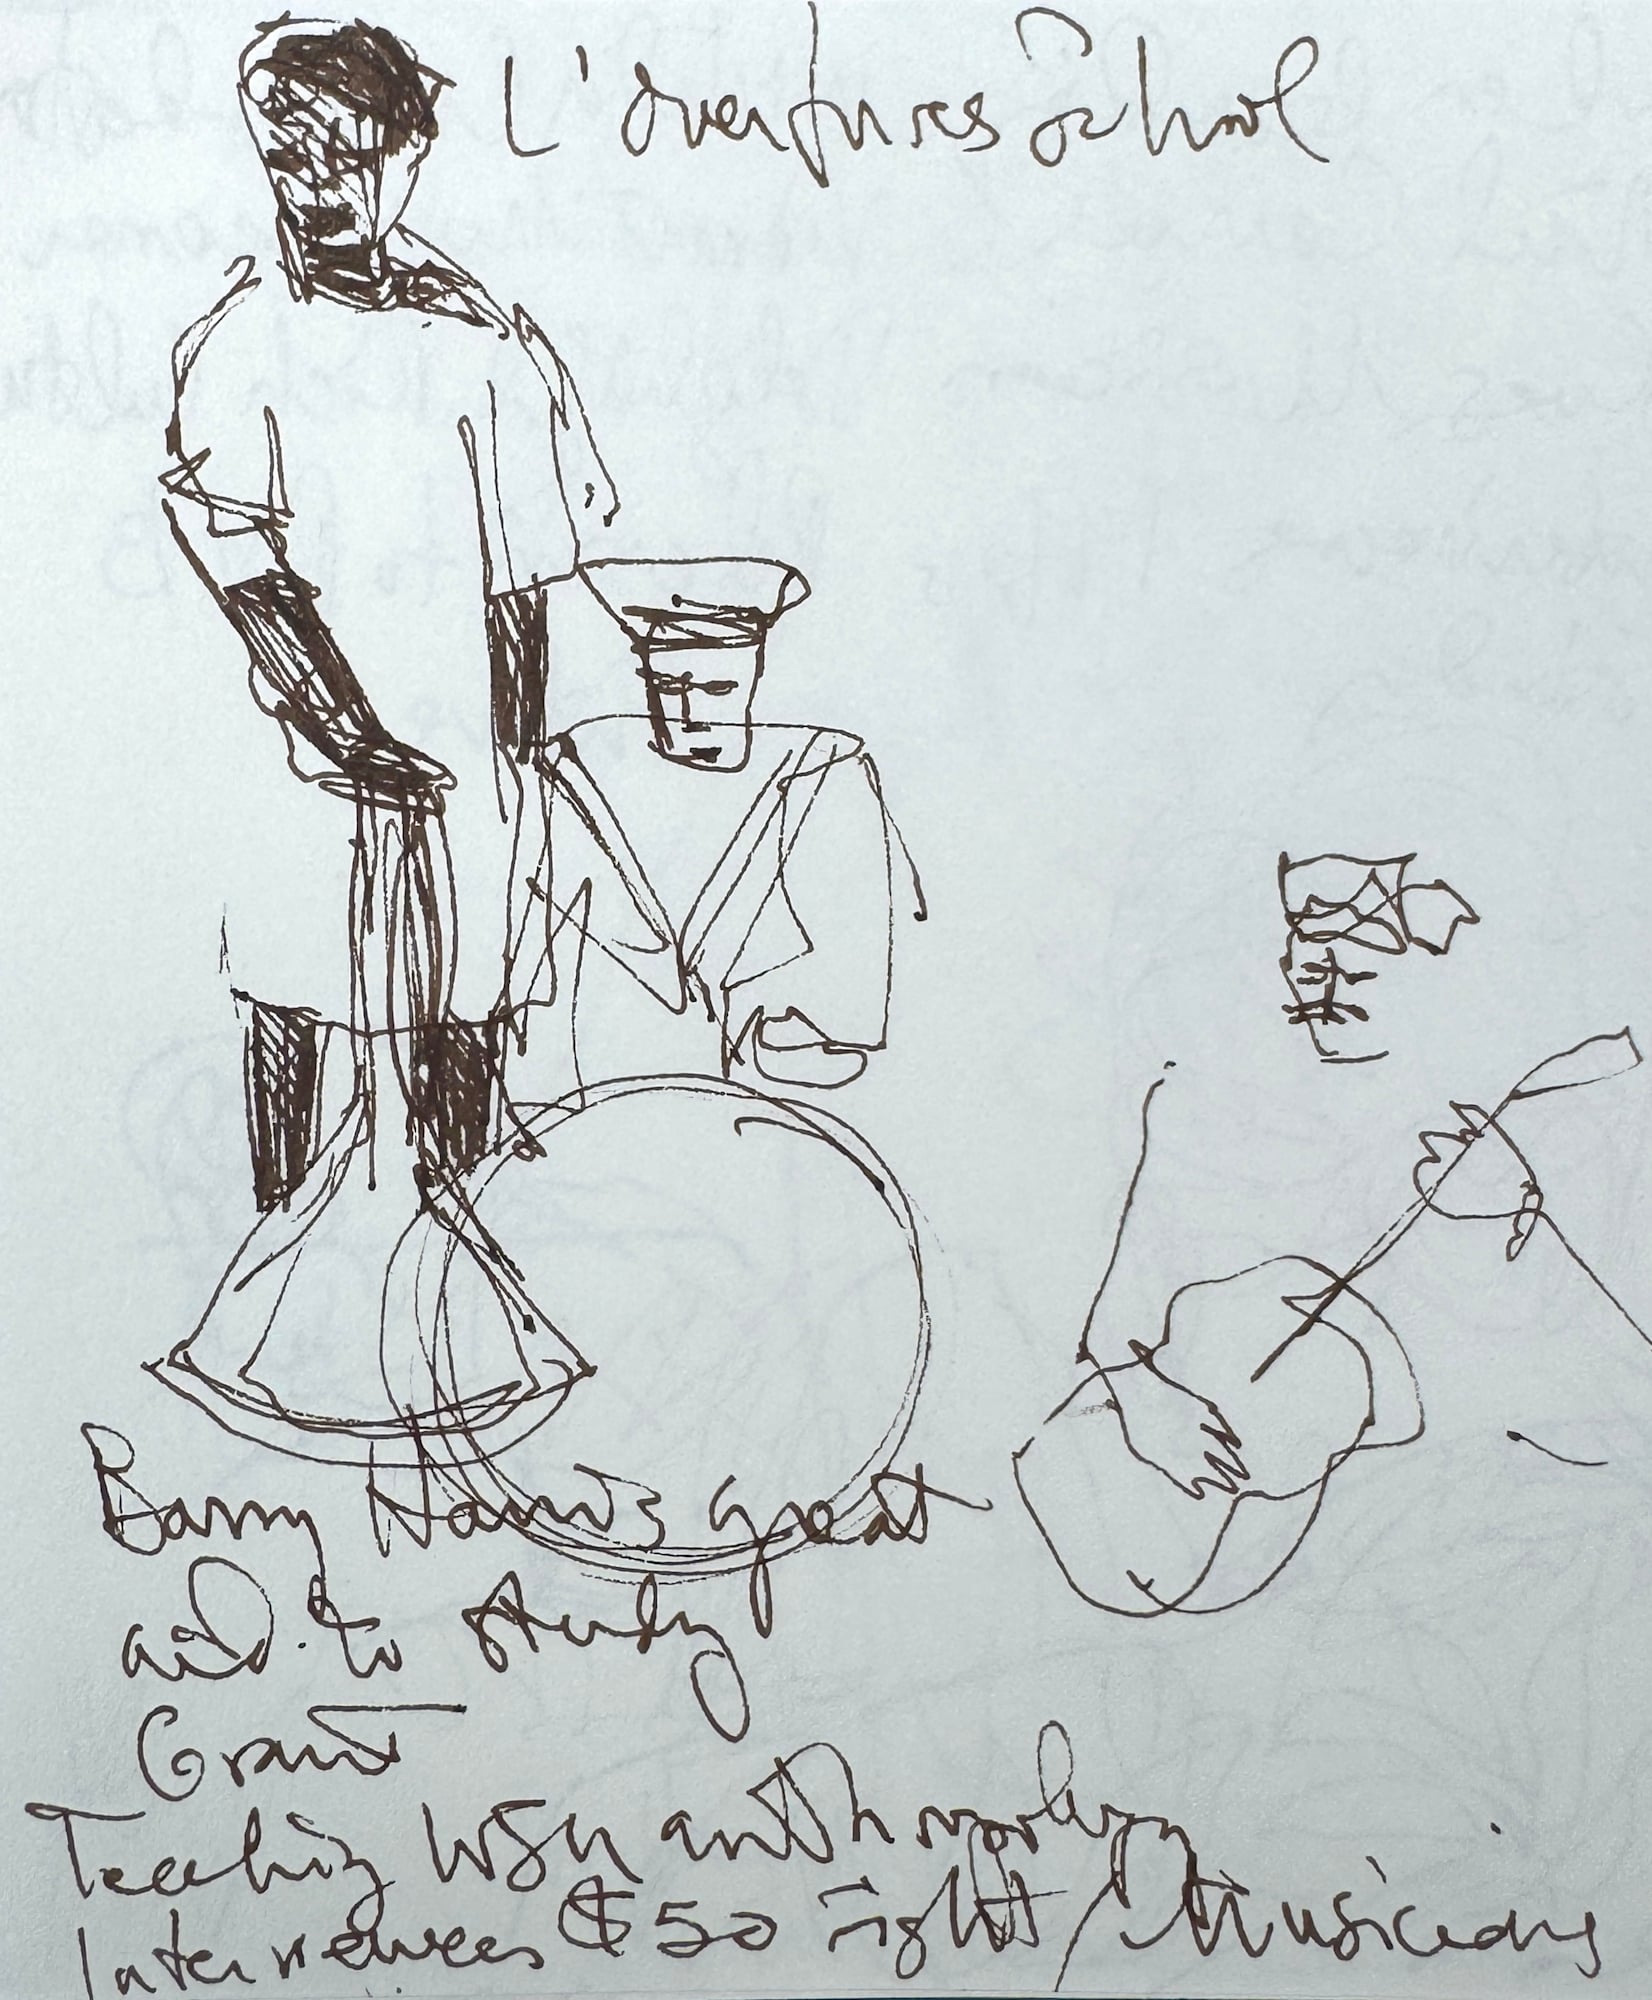 L'overtures School
Barry Harris great
aid. to study
Grant
Teaching WSU anthropology
Interviewees $50 night / Musicians